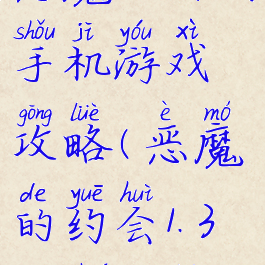 shǒu jī yóu xì
手机游戏
gōng lüè è mó
攻略(恶魔
de yuē huì
的约会1.3